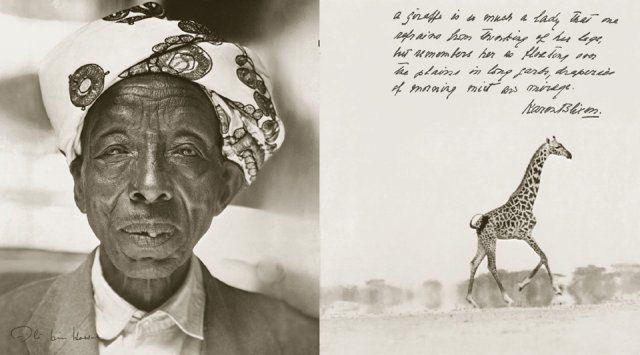 a giraffe is so much a lady that one
refrains from thinking of her legs,
but remembers her as floating over
the plains in long garbs, draperies
of morning mist mirage.
Karen Blixen.